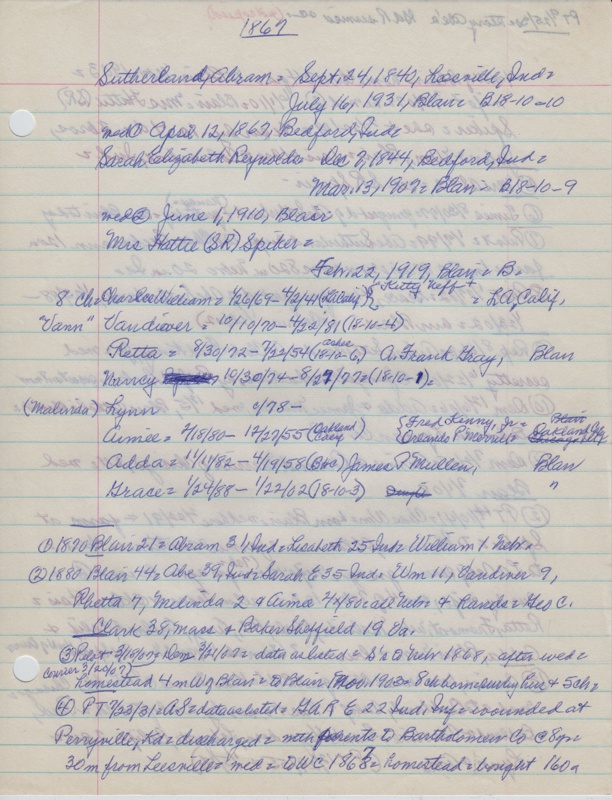 1867
Sutherland, Abram = Sept. 24, 1840, Leesville, Ind =
July 16, 1931, Blair = B18-10-10
med ① April 12, 1867, Bedford, Ind =
Sarah Elizabeth Reynolds = Dec 7, 1844, Bedford, Ind =
Mar. 13, 1907 = Blair = B18-10-9
med ② June 1, 1910, Blair
Mrs Hattie (SR) Spiker =
Feb. 22, 1919, Blair = B.
8 ch = Charles William = 1/26/69 - 4/2/41 Kitty Neff + = LA, Calif.
"Vann" Vandiver = 10/10/70 - 4/22/81 (18-10-4)
Retta = 8/30/72 - 7/22/54 (18-10-6) ashes O. Frank Gray, Blair
Nancy 10/30/74 - 8/27/77 = (18-10-1) =
(Malinda) Lynn c/78 -
Aimee = 2/18/80 - 12/27/55 (Oakland { Fred Kenny, Jr = Blair
Orlando P Merrill = Oakland
Adda = 11/11/82 - 4/19/58 (BwC) James P Mullen, Blair
Grace = 1/24/88 - 1/22/02 (18-10-3) "
① 1870 Blair 21 = Abram 31, Ind = Lisabeth 25 Ind = William 1 Nebr =
② 1880 Blair 44 = Abe 39, Ind = Sarah E 35 Ind = Wm 11, Vandiver 9,
Rhetta 7, Melinda 2 & Aima 4/80 = all Nebr & Hands = Geo C.
Clark 38, Mass & Baker Sheffield 19 Va.
③ Pilot 3/ Dem 3/21/07 = data as listed = S's to Nebr 1868, after wed =
Courier 3/20/07)
Homestead 4 m W of Blair = to Blair, Nov, 1903 = 8 ch born & 5 ch =
④ PT 7/23/31 = AS = data as listed = GAR E 22 Ind, Inf = wounded at
Perryville, Kd = discharged = mth parents to Bartholomew Co @ 8 yr =
30 m from Leesville = med = to WC 1868 = Homestead = bought 160 a